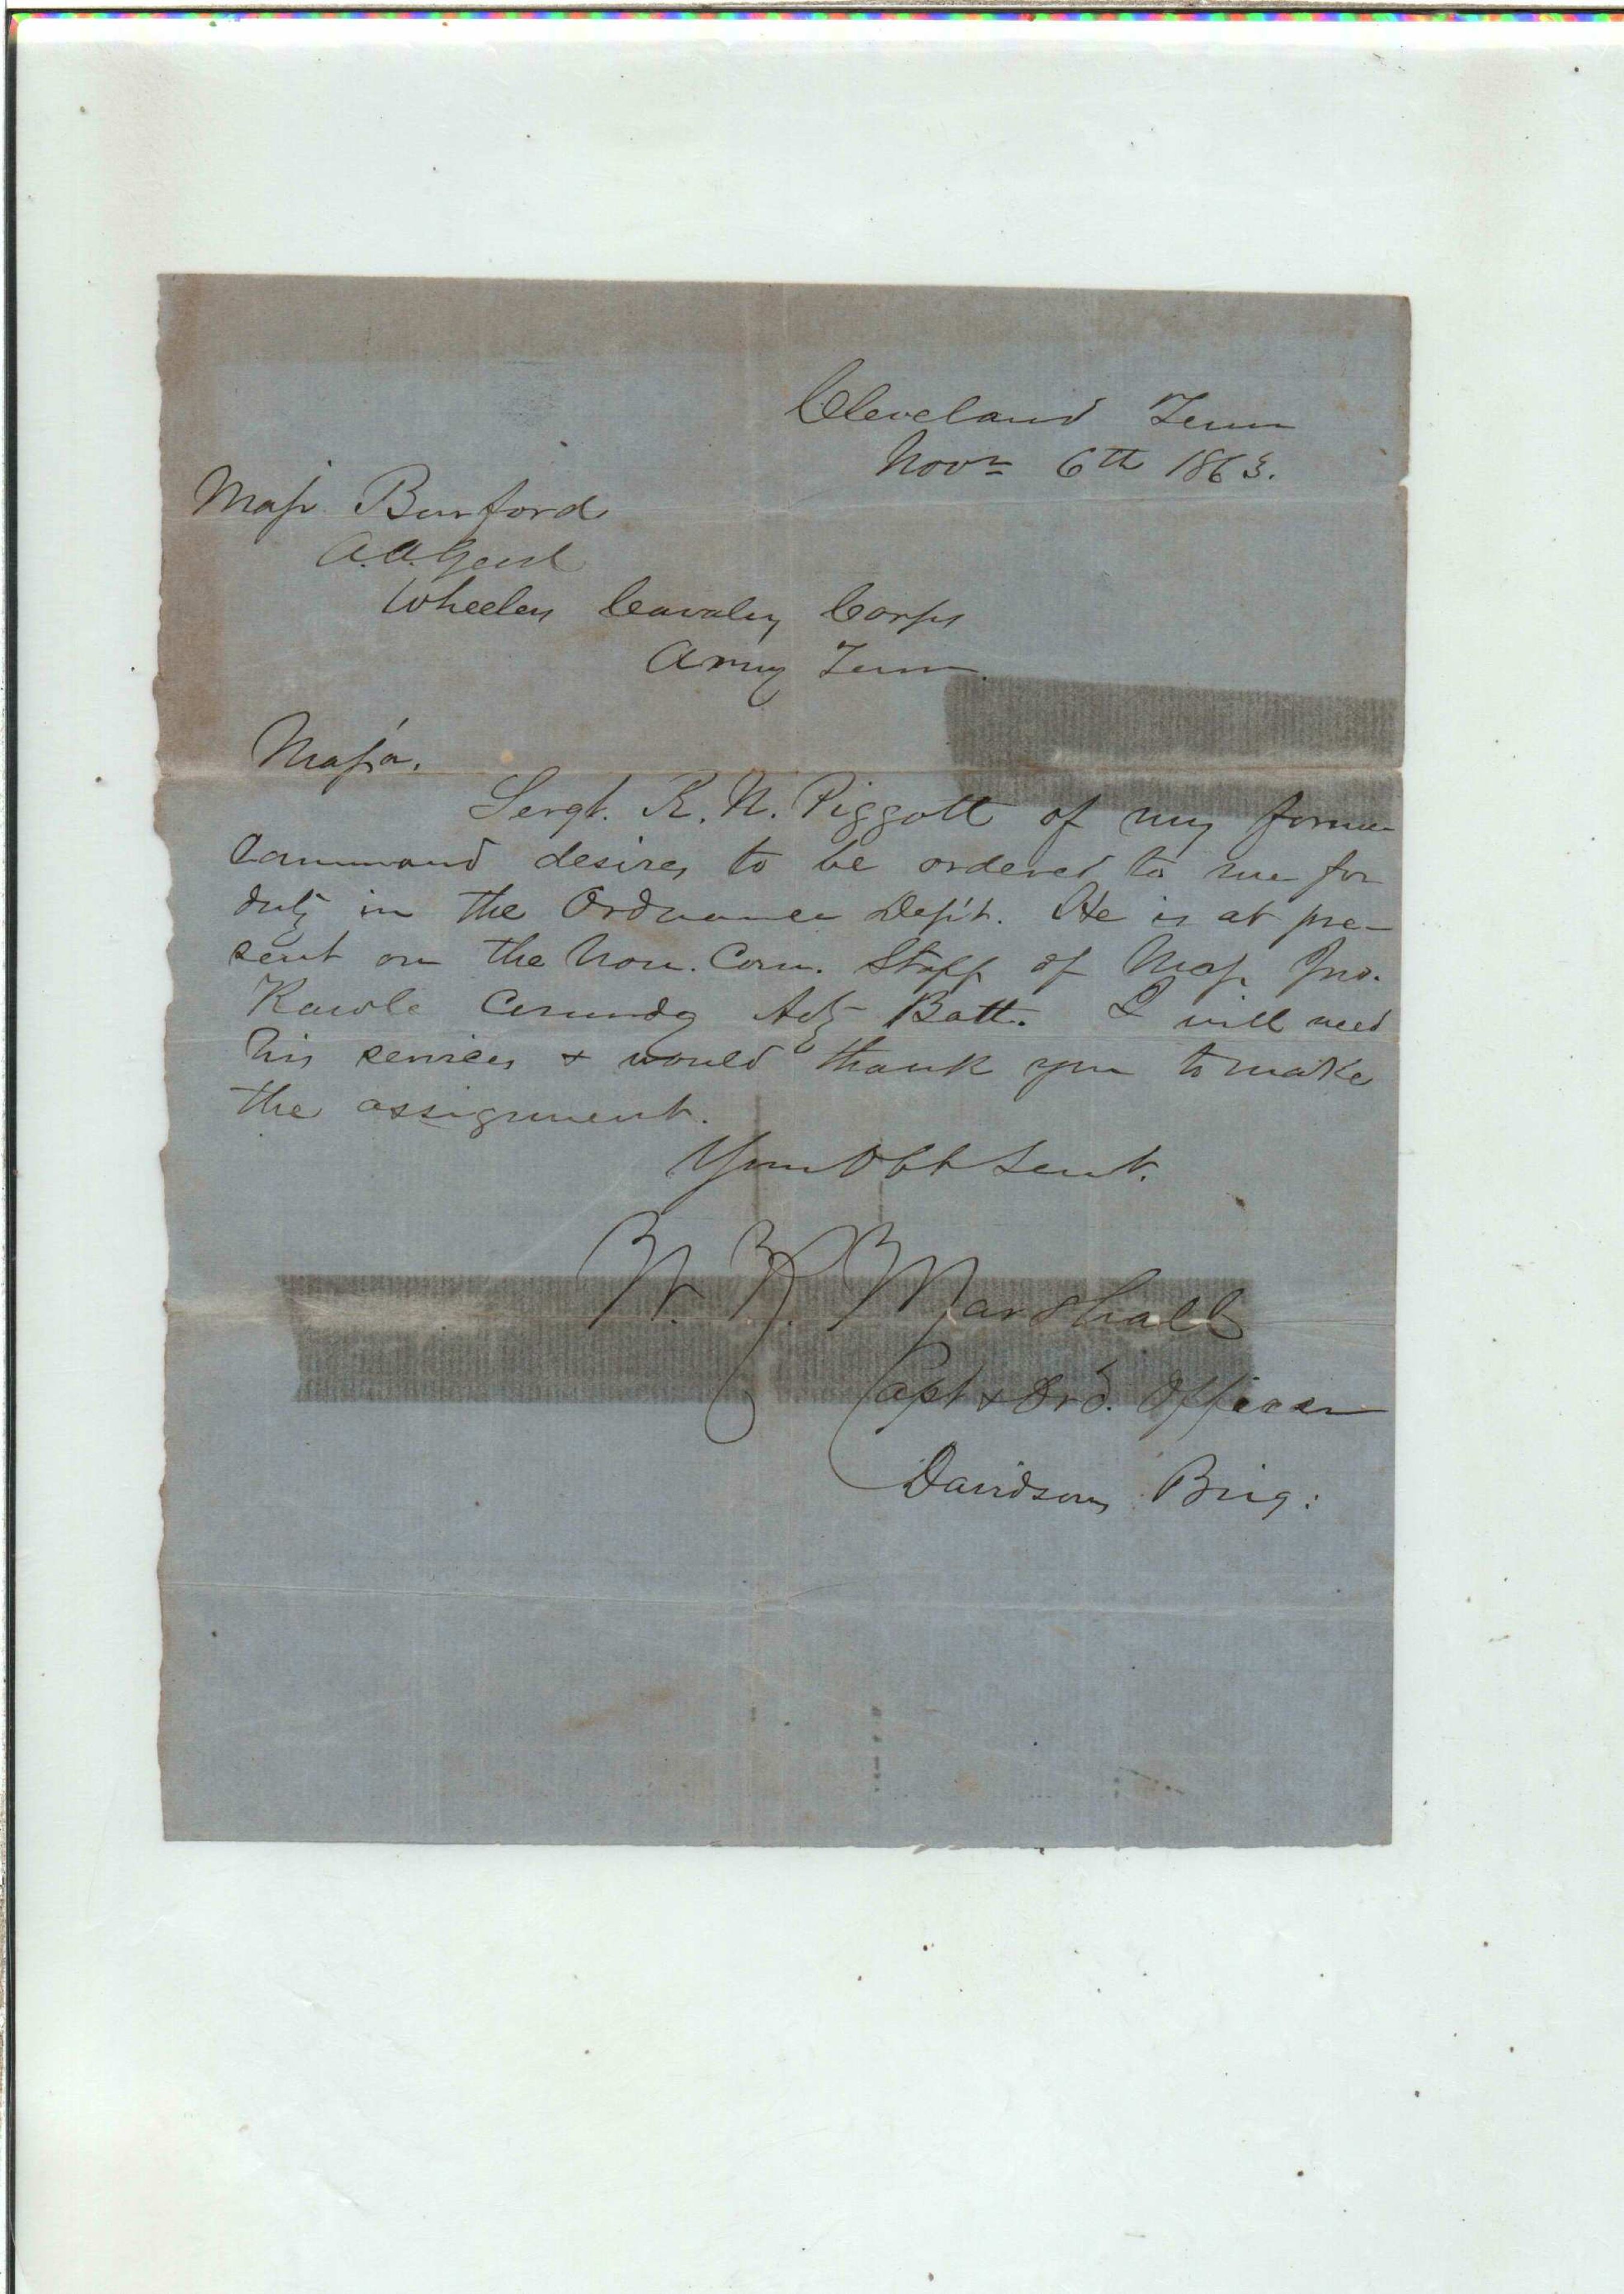 Cleveland Tenn
Novr 6th 1863.
Maj. Burford
A.A. Genl
Wheelers Cavalry Corps
Army Tenn.
Major.
Sergt. R. N. Piggott of my former
Command desires to be ordered to me for
duty in the Ordnance Dep't. He is at pre-
sent on the Non. Com. Staff of Maj. Jno.
Rawle Comndg Arty Batt. I will need
his services & would thank you to make
the assignment.
Your Obt Servt.
W. R. Marshall
Capt & Ord. Officer
Davidsons Brig: